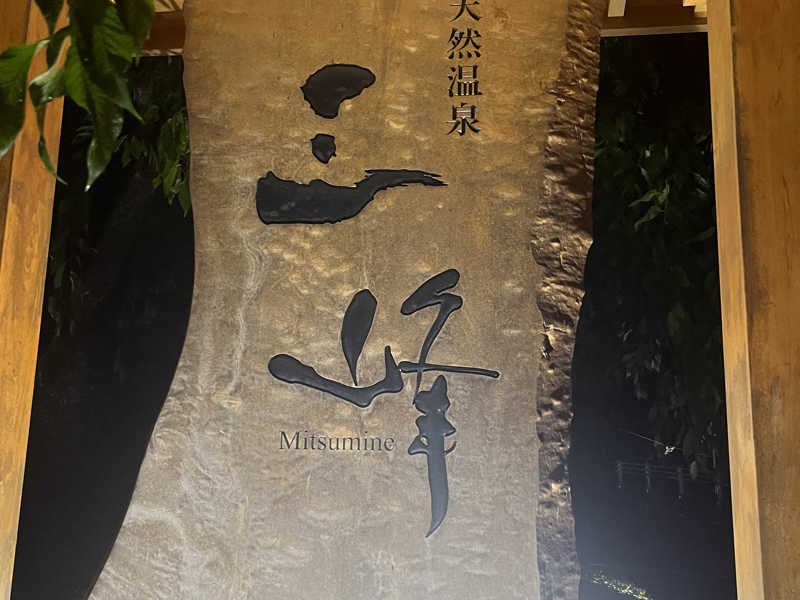 天然温泉
三峰
Mitsumine